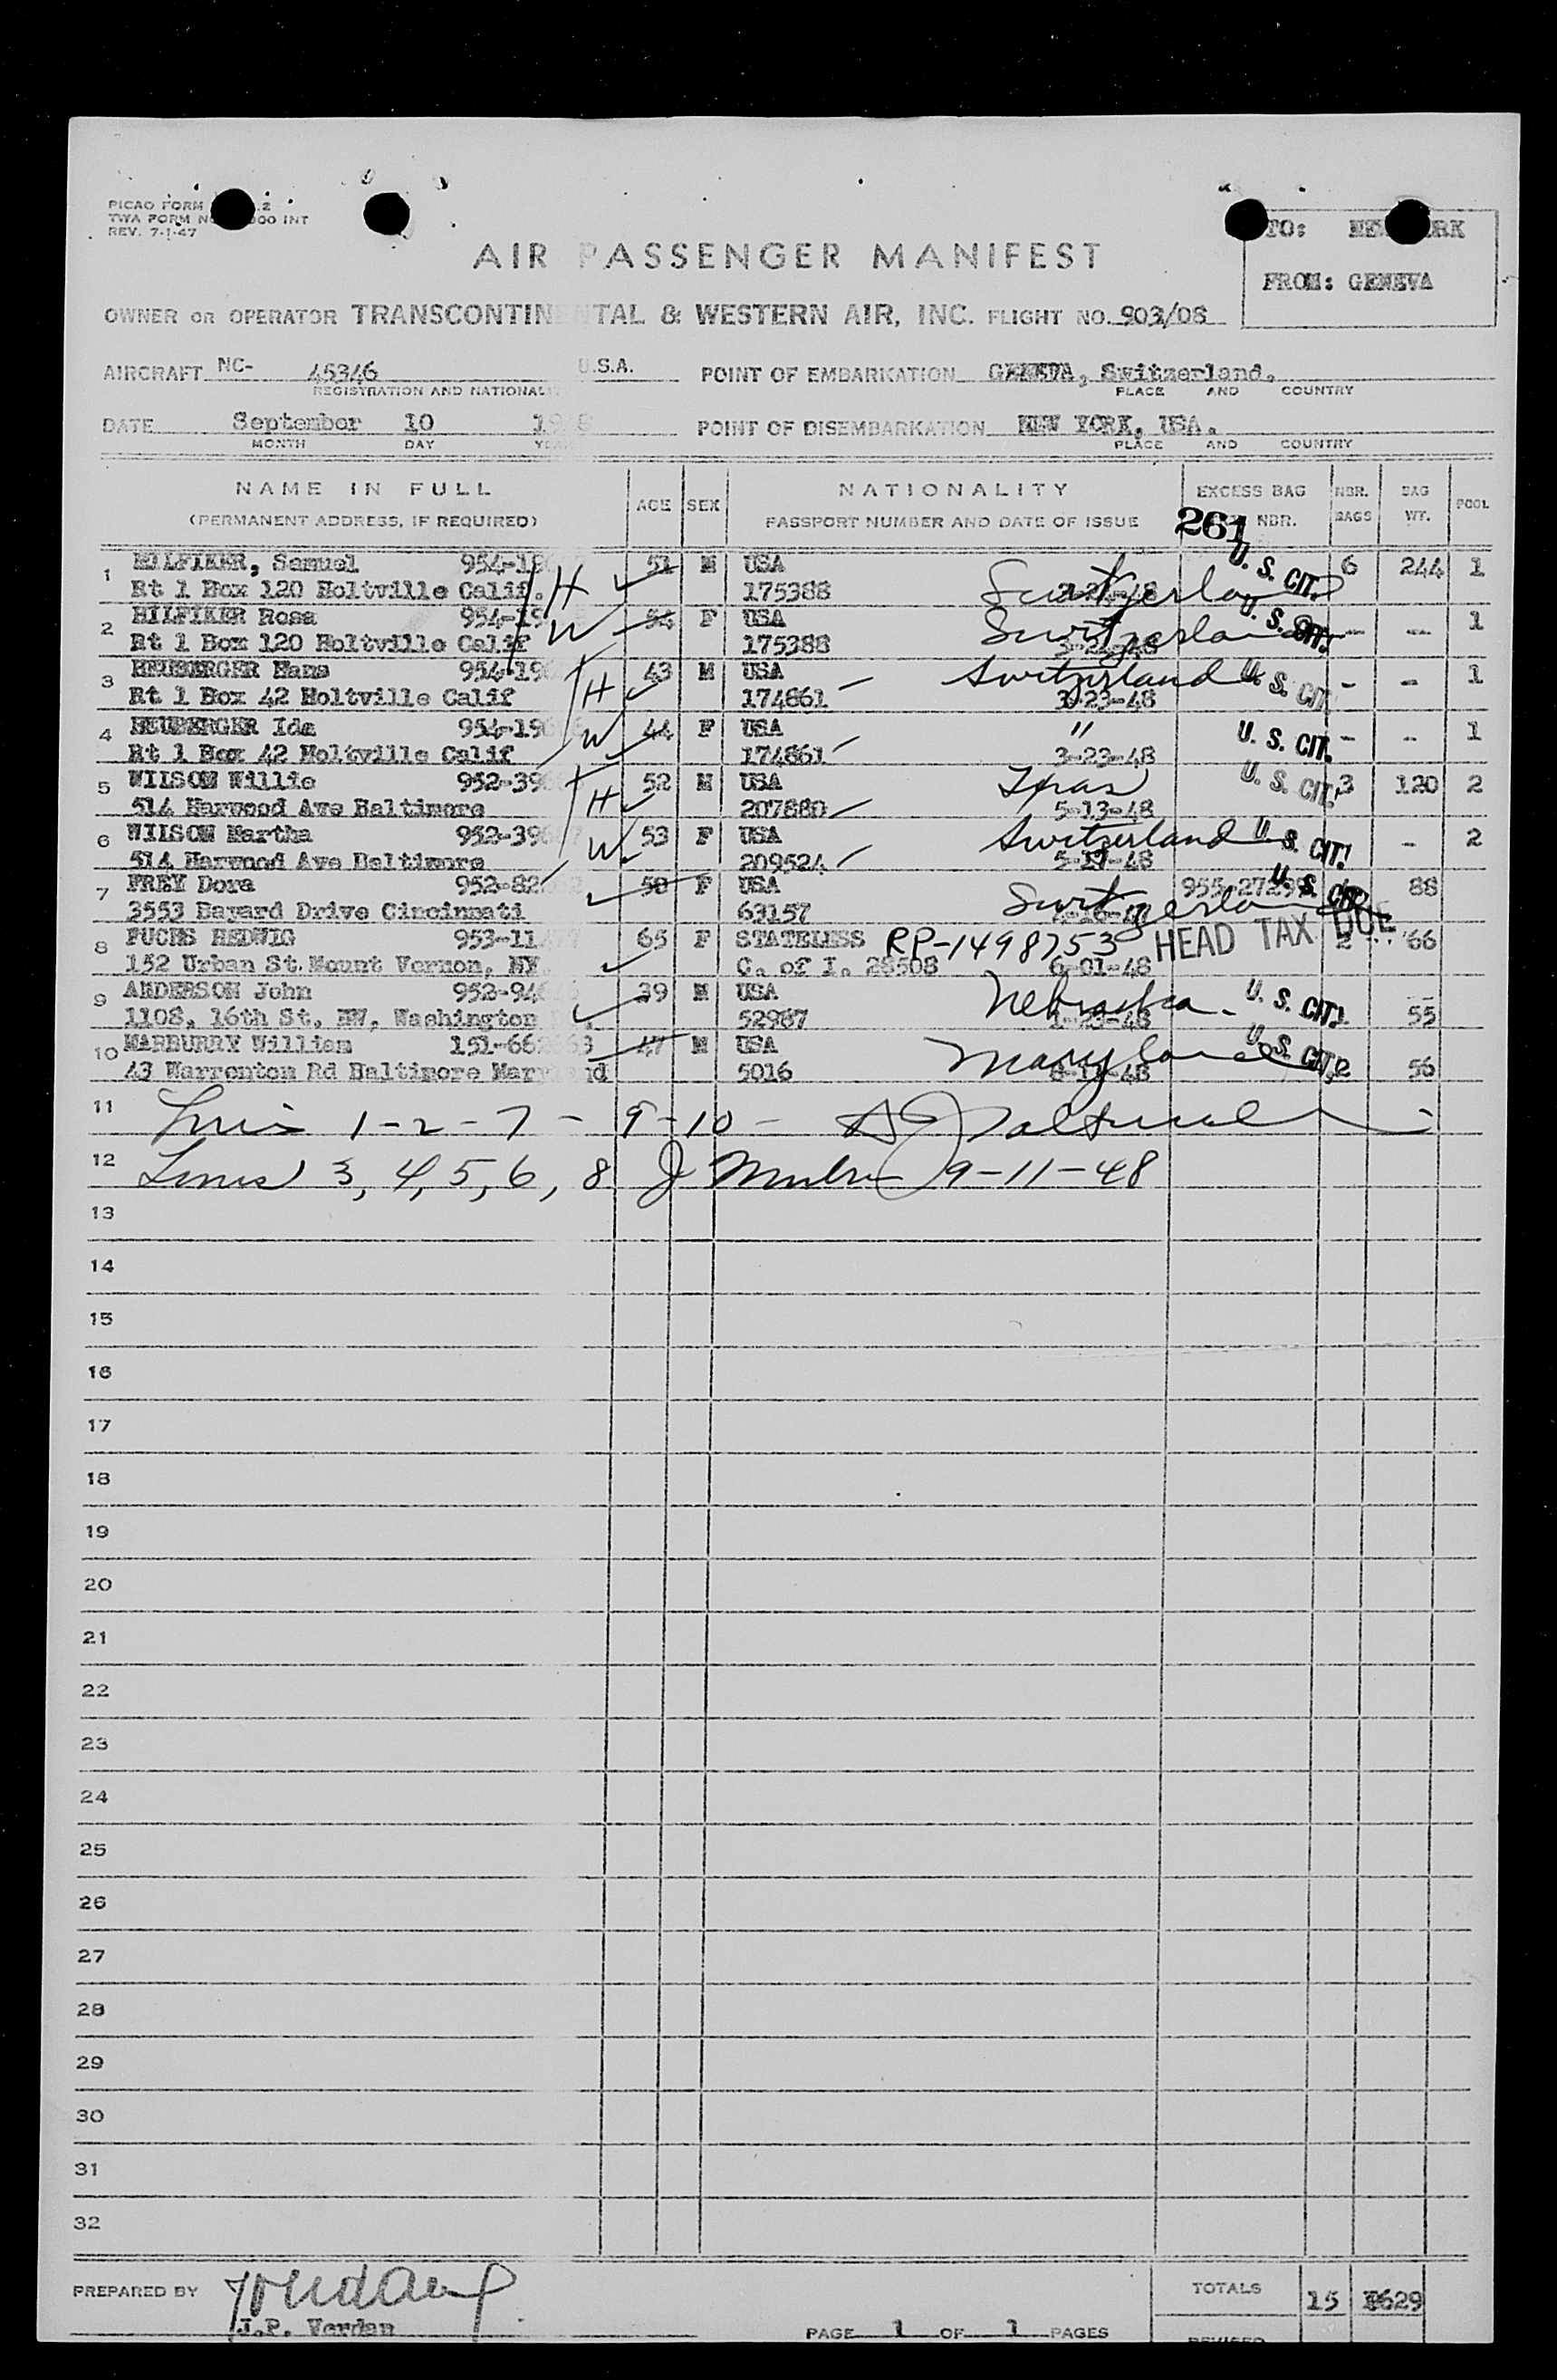 PICAO FORM 2
TWA FORM NO 000 INT
REV. 7-1-47
TO: NEW YORK
FROM: GENEVA
AIR PASSENGER MANIFEST
OWNER OR OPERATOR TRANSCONTINENTAL & WESTERN AIR, INC. FLIGHT NO. 903/08
AIRCRAFT NC- 45346 U.S.A. POINT OF EMBARKATION GENEVA, Switzerland.
REGISTRATION AND NATIONALI PLACE AND COUNTRY
DATE September 10 19 8 POINT OF DISEMBARKATION NEW YORK, USA.
MONTH DAY YEA PLACE AND COUNTRY
NAME IN FULL AGE SEX NATIONALITY EXCESS BAG NBR. BAG POOL
(PERMANENT ADDRESS, IF REQUIRED) PASSPORT NUMBER AND DATE OF ISSUE 261 NBR. BAGS WT.
1 HILFIKER, Samuel 954-19 H 51 M USA Switzerland U. S. CIT. 6 244 1
Rt 1 Box 120 Holtville Calif. 175388
2 HILFIKER Rosa 954-19 W 54 F USA Switzerland U. S. CIT. - -- 1
Rt 1 Box 120 Holtville Calif 175388
3 HEUBERGER Hans 954-19 H 43 M USA Switzerland U. S. CIT. - - 1
Rt 1 Box 42 Holtville Calif 174861 3-23-48
4 HEUBERGER Ida 954-19 W 44 F USA " U. S. CIT. - -- 1
Rt 1 Box 42 Holtville Calif 174861 3-23-48
5 WILSON Willie 952-39 H 52 M USA Texas U. S. CIT. 3 120 2
514 Harwood Ave Baltimore 207880 5-13-48
6 WILSON Martha 952-39 W 53 F USA Switzerland U. S. CIT. - 2
514 Harwood Ave Baltimore 209524
7 FREY Dora 952-82 50 F USA Switzerland U. S. CIT. 88
3553 Bayard Drive Cincinnati 63157
8 FUCHS HEDWIG 953-11 65 F STATELESS RP-1498753 HEAD TAX DUE 2 66
152 Urban St. Mount Vernon, NY. C. of I. 28508 6-01-48
9 ANDERSON John 952-94 39 M USA Nebraska. U. S. CIT. 1
1108, 16th St, NW, Washington 52967 55
10 MARBURRY William 151-66 47 M USA Maryland U. S. CIT. 2
43 Warrenton Rd Baltimore Maryland 5016 56
11 1-2-7-9-10-
12 Lines 3, 4, 5, 6, 8 9-11-48
13
14
15
16
17
18
19
20
21
22
23
24
25
26
27
28
29
30
31
32
PREPARED BY TOTALS 15 629
J.P. Verdan
PAGE 1 OF 1 PAGES